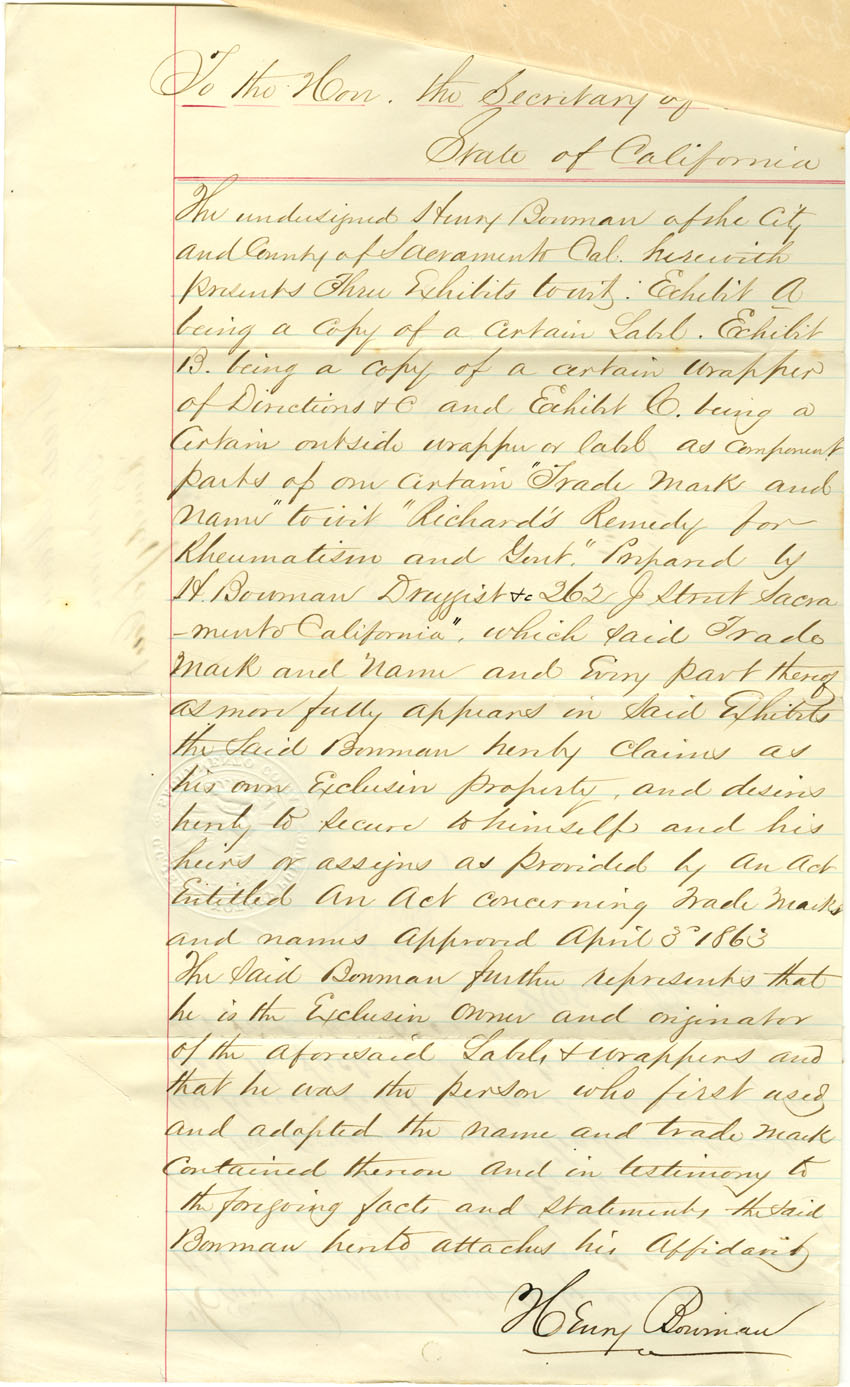 To the Hon. the Secretary of
State of California
The undersigned Henry Bowman of the City
and County of Sacramento Cal. herewith
presents Three Exhibits to wit: Exhibit A
being a copy of a certain Label. Exhibit
B. being a copy of a certain wrapper
of Directions &c and Exhibit C. being a
Certain outside wrapper or label as component
parts of one certain "Trade Mark and
Name" to wit "Richard's Remedy for
Rheumatism and Gout." Prepared by
H. Bowman Druggist &c 262 J Street Sacra
-mento California". which said Trade
Mark and Name and Every part thereof
as more fully appears in said Exhibits
the said Bowman hereby claims as
his own Exclusive property, and desires
hereby to secure to himself and his
heirs or assigns as provided by an Act
Entitled An Act concerning Trade Marks
and names Approved April 3d 1863
The said Bowman further represents that
he is the Exclusive owner and originator
of the aforesaid Labels & wrappers and
that he was the person who first used
and adopted the name and trade mark
contained thereon and in testimony to
the foregoing facts and statements the said
Bowman hereto attaches his Affidavit
Henry Bowman